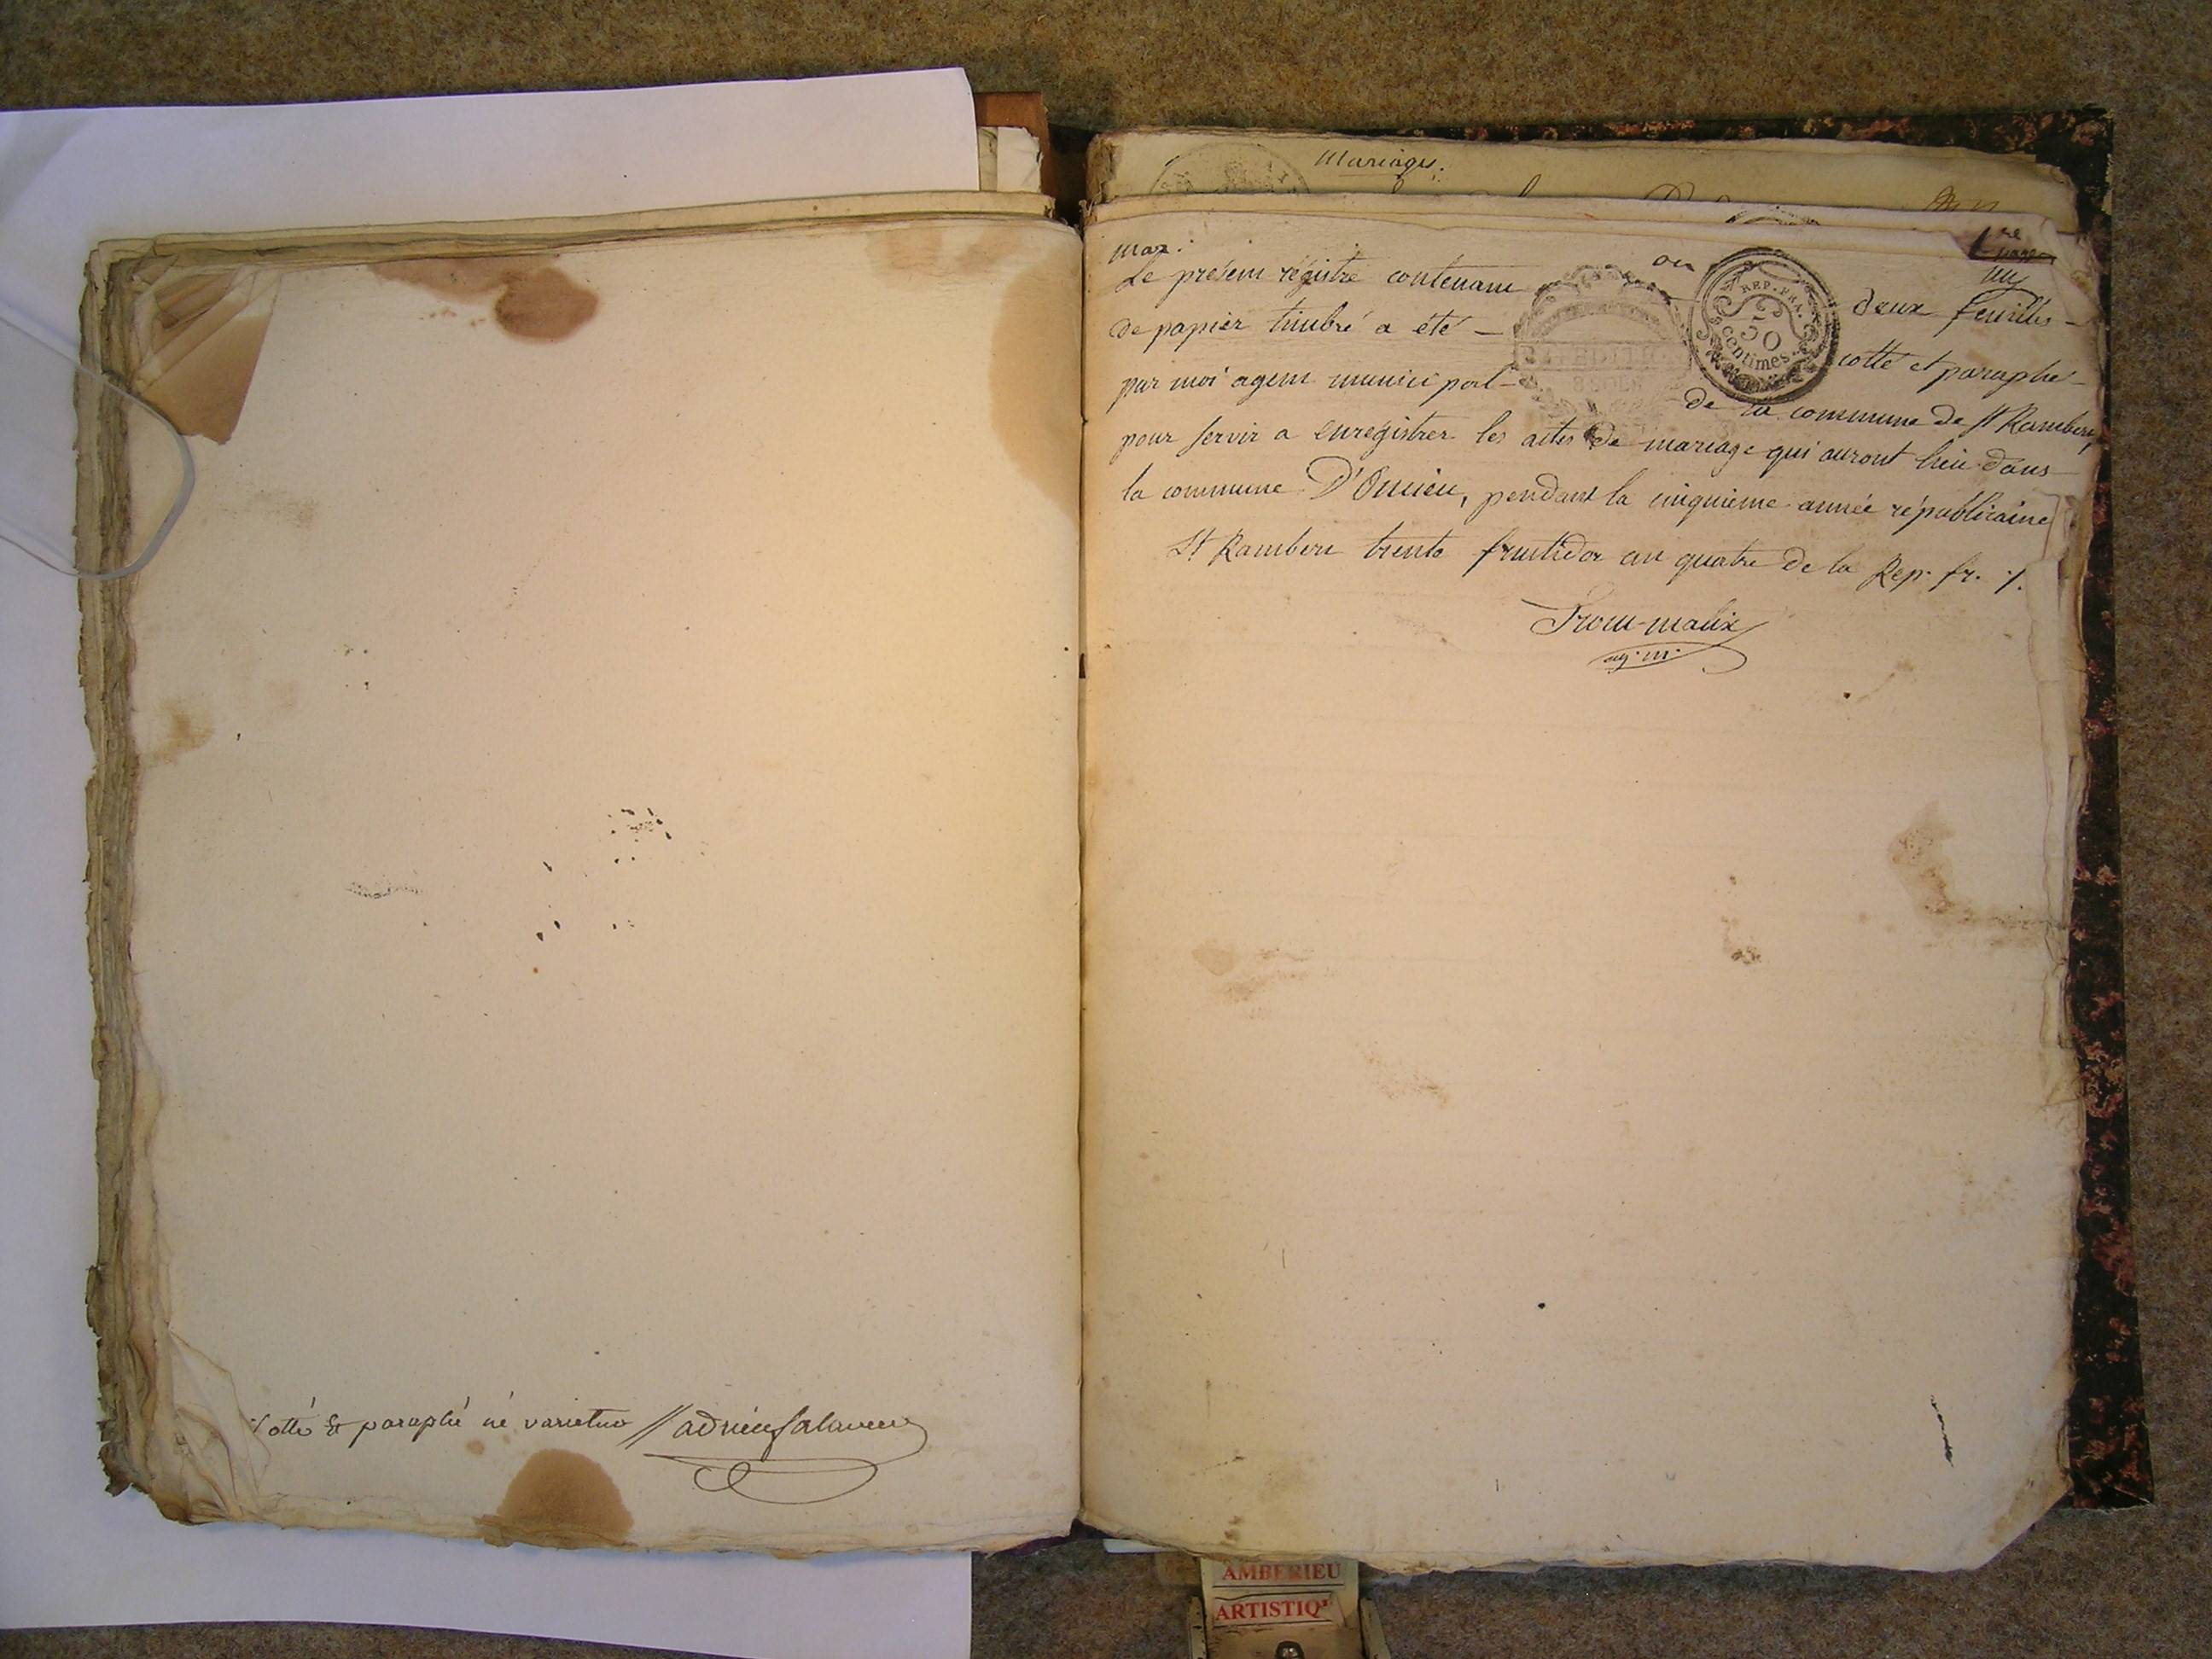 Cotté & paraphé né varietur
Mariages:
mar:
1re
Le present régistre contenant deux feuilles
de papier timbré a été cotté et paraphé
par moi agent municipal de la commune de St Rambert,
pour servir a enregistrer les actes de mariage qui auront lieu dans
la commune D'Oncieu, pendant la cinquieme année républicaine
St Rambert trente fructidor an quatre de la Rep. fr. ./.
ag. m.
REP. FRA.
50
centimes.
8 SOLS
AMBERIEU
ARTISTIQ